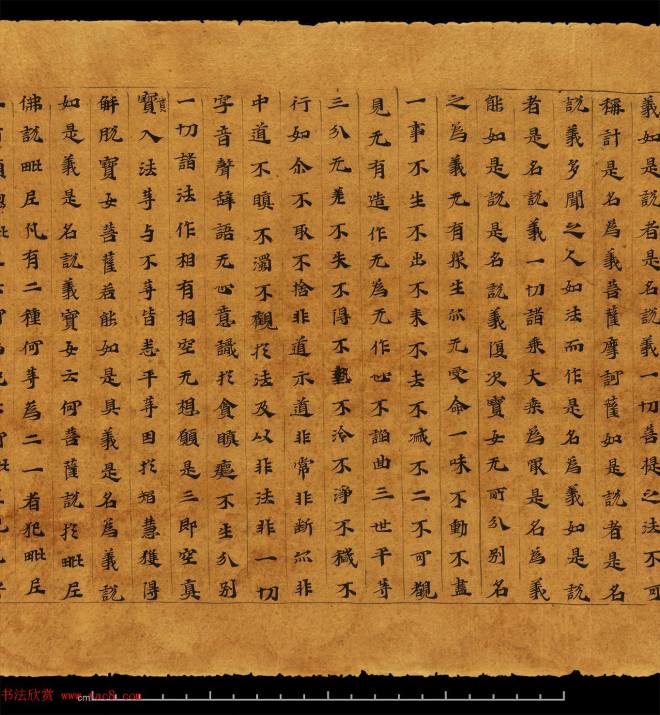 義如是說者是名說義一切菩提之法不可
稱計是名為義菩薩摩訶薩如是說者是名
說義多聞之人如法而作是名為義如是說
者是名說義一切諸乘大乘為最是名為義
能如是說是名說義復次寶女无所分別名
之為義无有眾生亦无受命一味不動不盡
一事不生不出不來不去不減不二不可觀
見无有造作无為无作心不諂曲三世平等
三分无差不失不得不熱不冷不淨不穢不
行如尒不取不捨非道示道非常非斷亦非
中道不瞋不濁不觀於法及以非法非一切
字音聲辞語无心意識於貪瞋癡不生分別
一切諸法作相有相空无想願是三即空真
實入法等与不等皆悉平等因於智慧獲得
解脫寶女菩薩若能如是具義是名為義說
如是義是名說義寶女云何菩薩說於毗尼
佛說毗尼凡有二種何等為二一者犯毗尼
书法欣赏 www.yac8.com
cm